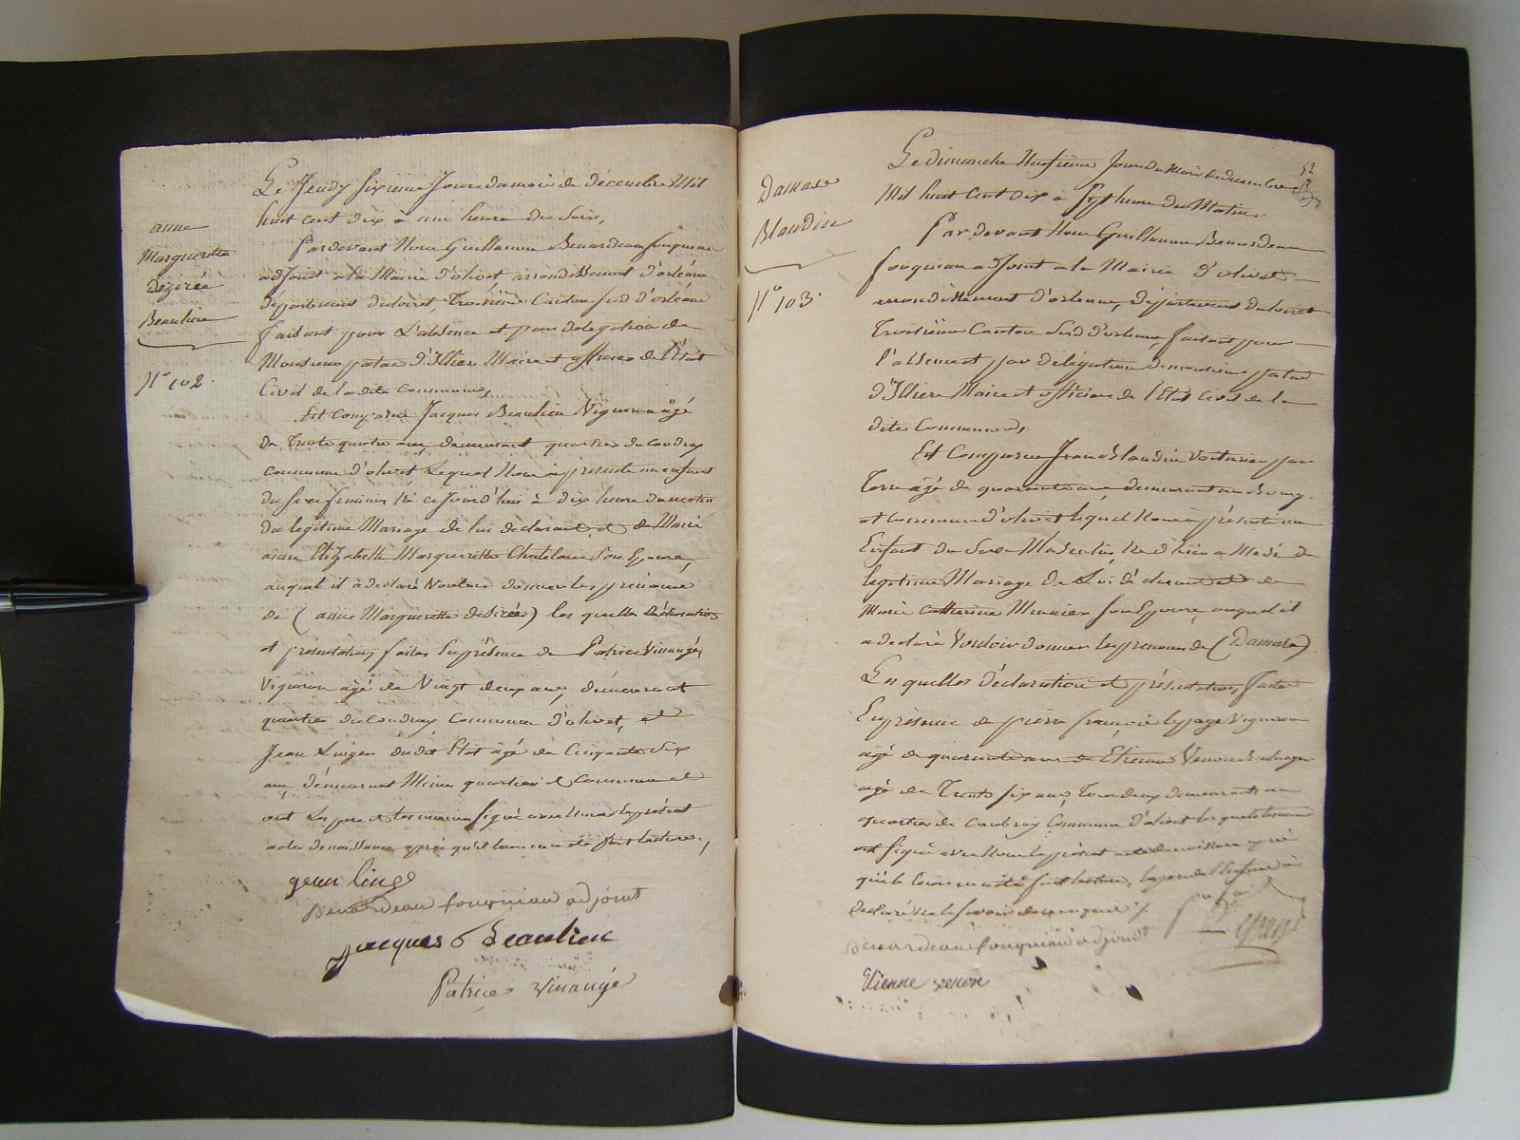 anne
Margueritte
dézirée
Beaulieu
N° 102.
Le Jeudy sixieme Jour du mois de décembre Mil
huit cent dix à une heure du Soir,
Pardevant Nous Guillaume Benardeau fouqniau
adjoint a la Mairie d'olivet arrondissement d'orléans
département du loiret, Troisième Canton sud d'orléans
faisant pour L'absence et par délégation de
Monsieur patas d'Illiers Maire et officier de l'État
Civil de la dite commune,
Est comparu Jacques Beaulieu Vigneron âgé
de Trente quatre ans, demeurant quartier du Coudray
commune d'olivet Lequel Nous à présenté un enfant
du sexe feminin né ce Jourd'hui à dix heure du matin
du legitime Mariage de lui déclarant et de Marie
anne Elizabelle Marguerette Chatelain Son Epouse,
auquel il à déclaré Vouloir donner les prénoms
de (anne Marguerette desirée) les quelles déclaration
et présentation faites En présence de Patrice Vinaugé,
Vigneron âgé de Vingt deux ans, demeurant
quartier du Coudray Commune d'olivet, et
Jean Linger du dit Etat âgé de Cinquante six
ans, demeurant Même quartier et commune et
ont Les pere et temoins Signé avec Nous le présent
acte de naissance après qu'il leur en a été fait lecture,
jean linge
Benardeau fouqniau adjoint
jacques Beaulieu
Patrice Vinaugé
Damase
Blandin
N° 103.
52
Le dimanche Neufième Jour du Mois de decembre
Mil huit Cent dix à Sept heure du Matin
Par, devant Nous Guillaume Benardeau
fouqniau adjoint a la Mairie d'olivet
arrondissement d'orleans, Département du loiret
Troisième Canton Sud d'orleans, faisant pour
l'absence et par delegation de monsieur patas
d'Illiers Maire et officier de l'Etat Civil de la
dite Commune,
Est Comparu Jean Blandin Voiturier par
Terre âgé de quarante ans demeurant au Bourg
et Commune d'olivet lequel Nous à présenté un
Enfant du Sexe Masculin Né d'hier a Midi du
legitime Mariage de Lui déclarant et de
Marie Catherine Meunier son Epouse, auquel il
a declaré Vouloir donner les prenoms de (Damase)
Les quelles déclaration et présentation faites
En présence de pierre françois lepage Vigneron
âgé de quarante ans et Etienne Venon
âgé de Trente six ans, Tous deux demeurants au
quartier du Coudray Commune d'olivet les quels temoins
ont Signé avec Nous le présent acte de naissance après
qu'il leur en a été fait lecture, le pere de l'Enfant à
declaré ne le savoir
Benardeau fouqniau adjoint
Etienne venon